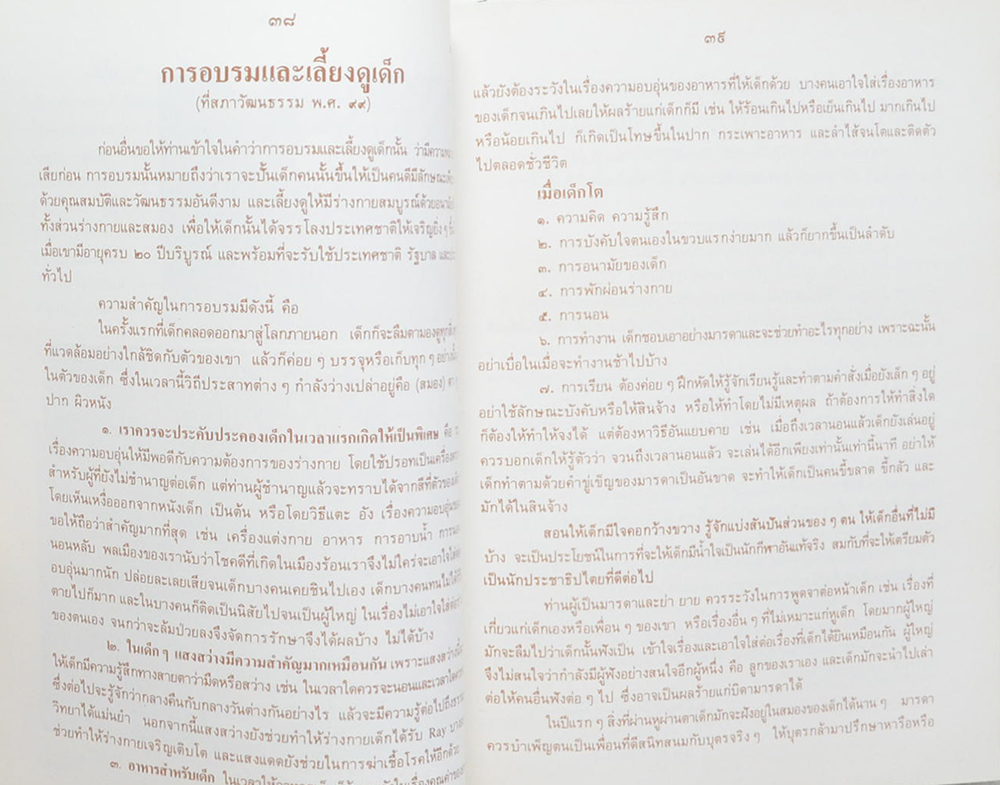 ๓๘
การอบรมและเลี้ยงดูเด็ก
(ที่สภาวัฒนธรรม พ.ศ. ๙๙)
ก่อนอื่นขอให้ท่านเข้าใจในคำว่าการอบรมและเลี้ยงดูเด็กนั้น ว่ามีความ
เสียก่อน การอบรมนั้นหมายถึงว่าเราจะปั้นเด็กคนนั้นขึ้นให้เป็นคนดีมีลักษณะ
ด้วยคุณสมบัติและวัฒนธรรมอันดีงาม และเลี้ยงดูให้มีร่างกายสมบูรณ์ด้วย
ทั้งส่วนร่างกายและสมอง เพื่อให้เด็กนั้นได้จรรโลงประเทศชาติให้เจริญยิ่ง ๆ
เมื่อเขามีอายุครบ ๒๐ ปีบริบูรณ์ และพร้อมที่จะรับใช้ประเทศชาติ รัฐบาล
ทั่วไป
ความสำคัญในการอบรมมีดังนี้ คือ
ในครั้งแรกที่เด็กคลอดออกมาสู่โลกภายนอก เด็กก็จะลืมตามองดูทุก
ที่แวดล้อมอย่างใกล้ชิดกับตัวของเขา แล้วก็ค่อย ๆ บรรจุหรือเก็บทุก ๆ อย่าง
ในตัวของเด็ก ซึ่งในเวลานี้วิถีประสาทต่าง ๆ กำลังว่างเปล่าอยู่คือ (สมอง)
ปาก ผิวหนัง
๑. เราควรจะประคับประคองเด็กในเวลาแรกเกิดให้เป็นพิเศษ คือ
เรื่องความอบอุ่นให้มีพอดีกับความต้องการของร่างกาย โดยใช้ปรอทเป็นเครื่อง
สำหรับผู้ที่ยังไม่ชำนาญต่อเด็ก แต่ท่านผู้ชำนาญแล้วจะทราบได้จากสีที่ตัวของ
โดยเห็นเหงื่อออกจากหนังเด็ก เป็นต้น หรือโดยวิธีแตะ อัง เรื่องความอบอุ่น
ขอให้ถือว่าสำคัญมากที่สุด เช่น เครื่องแต่งกาย อาหาร การอาบน้ำ
นอนหลับ พลเมืองของเรานับว่าโชคดีที่เกิดในเมืองร้อนเราจึงไม่ใคร่จะเอาใจใส่
อบอุ่นมากนัก ปล่อยละเลยเสียจนเด็กบางคนเคยชินไปเอง เด็กบางคนทนไม่ได้
ตายไปก็มาก และในบางคนก็ติดเป็นนิสัยไปจนเป็นผู้ใหญ่ ในเรื่องไม่เอาใจใส่
ของตนเอง จนกว่าจะล้มป่วยลงจึงจัดการรักษาจึงได้ผลบ้าง ไม่ได้บ้าง
๒. ในเด็กๆ แสงสว่างมีความสำคัญมากเหมือนกัน เพราะแสงสว่าง
ให้เด็กมีความรู้สึกทางสายตาว่ามืดหรือสว่าง เช่น ในเวลาใดควรจะนอนและเวลาใด
ซึ่งต่อไปจะรู้จักว่ากลางคืนกับกลางวันต่างกันอย่างไร แล้วจะมีความรู้ต่อไปถึง
วิทยาได้แม่นยำ นอกจากนี้แสงสว่างยังช่วยทำให้ร่างกายเด็กได้รับ Ray
ช่วยทำให้ร่างกายเจริญเติบโต และแสงแดดยังช่วยในการฆ่าเชื้อโรคให้อีกด้วย
๓. อาหารสำหรับเด็ก ในเวลาให้
๓๙
แล้วยังต้องระวังในเรื่องความอบอุ่นของอาหารที่ให้เด็กด้วย บางคนเอาใจใส่เรื่องอาหาร
ของเด็กจนเกินไปเลยให้ผลร้ายแก่เด็กก็มี เช่น ให้ร้อนเกินไปหรือเย็นเกินไป มากเกินไป
หรือน้อยเกินไป ก็เกิดเป็นโทษขึ้นในปาก กระเพาะอาหาร และลำไส้จนโตและติดตัว
ไปตลอดชั่วชีวิต
เมื่อเด็กโต
๑. ความคิด ความรู้สึก
๒. การบังคับใจตนเองในขวบแรกง่ายมาก แล้วก็ยากขึ้นเป็นลำดับ
๓. การอนามัยของเด็ก
๔. การพักผ่อนร่างกาย
๕. การนอน
๖. การทำงาน เด็กชอบเอาอย่างมารดาและจะช่วยทำอะไรทุกอย่าง เพราะฉะนั้น
อย่าเบื่อในเมื่อจะทำงานช้าไปบ้าง
๗. การเรียน ต้องค่อย ๆ ฝึกหัดให้รู้จักเรียนรู้และทำตามคำสั่งเมื่อยังเล็ก ๆ อยู่
อย่าใช้ลักษณะบังคับหรือให้สินจ้าง หรือให้ทำโดยไม่มีเหตุผล ถ้าต้องการให้ทำสิ่งใด
ก็ต้องให้ทำให้จงได้ แต่ต้องหาวิธีอันแยบคาย เช่น เมื่อถึงเวลานอนแล้วเด็กยังเล่นอยู่
ควรบอกเด็กให้รู้ตัวว่า จวนถึงเวลานอนแล้ว จะเล่นได้อีกเพียงเท่านั้นเท่านี้นาที อย่าให้
เด็กทำตามด้วยคำขู่เข็ญของมารดาเป็นอันขาด จะทำให้เด็กเป็นคนขี้ขลาด ขี้กลัว และ
มักได้ในสินจ้าง
สอนให้เด็กมีใจคอกว้างขวาง รู้จักแบ่งสันปันส่วนของ ๆ ตน ให้เด็กอื่นที่ไม่มี
บ้าง จะเป็นประโยชน์ในการที่จะให้เด็กมีน้ำใจเป็นนักกีฬาอันแท้จริง สมกับที่จะให้เตรียมตัว
เป็นนักประชาธิปไตยที่ดีต่อไป
ท่านผู้เป็นมารดาและย่า ยาย ควรระวังในการพูดจาต่อหน้าเด็ก เช่น เรื่องที่
เกี่ยวแก่เด็กเองหรือเพื่อน ๆ ของเขา หรือเรื่องอื่น ๆ ที่ไม่เหมาะแก่หูเด็ก โดยมากผู้ใหญ่
มักจะลืมไปว่าเด็กนั้นฟังเป็น เข้าใจเรื่องและเอาใจใส่ต่อเรื่องที่เด็กได้ยินเหมือนกัน ผู้ใหญ่
จึงไม่สนใจว่ากำลังมีผู้ฟังอย่างสนใจอีกผู้หนึ่ง คือ ลูกของเราเอง และเด็กมักจะนำไปเล่า
ต่อให้คนอื่นฟังต่อ ๆ ไป ซึ่งอาจเป็นผลร้ายแก่บิดามารดาได้
ในปีแรก ๆ สิ่งที่ผ่านหูผ่านตาเด็กมักจะฝังอยู่ในสมองของเด็กได้นาน ๆ มารดา
ควรบำเพ็ญตนเป็นเพื่อนที่ดีสนิทสนมกับบุตรจริง ๆ ให้บุตรกล้ามาปรึกษาหารือหรือ